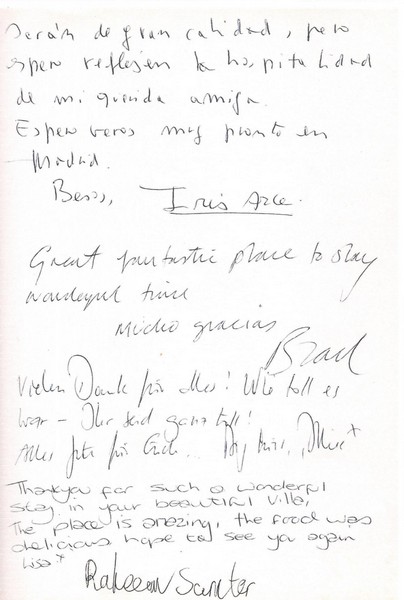 Serán de gran calidad, pero
espero reflejen la hospitalidad
de mi querida amiga.
Espero veros muy pronto en
Madrid.
Besos, Iris Arce.
Great fantastic place to stay
wonderful time
Mucho gracias
Brad
Vielen Dank für alles! Wie toll es
war - Ihr seid ganz toll!
Alles gute für Euch..
Thankyou for such a wonderful
stay in your beautiful Villa,
The place is amazing, the food was
delicious hope to see you again
Lisa*
Raheem